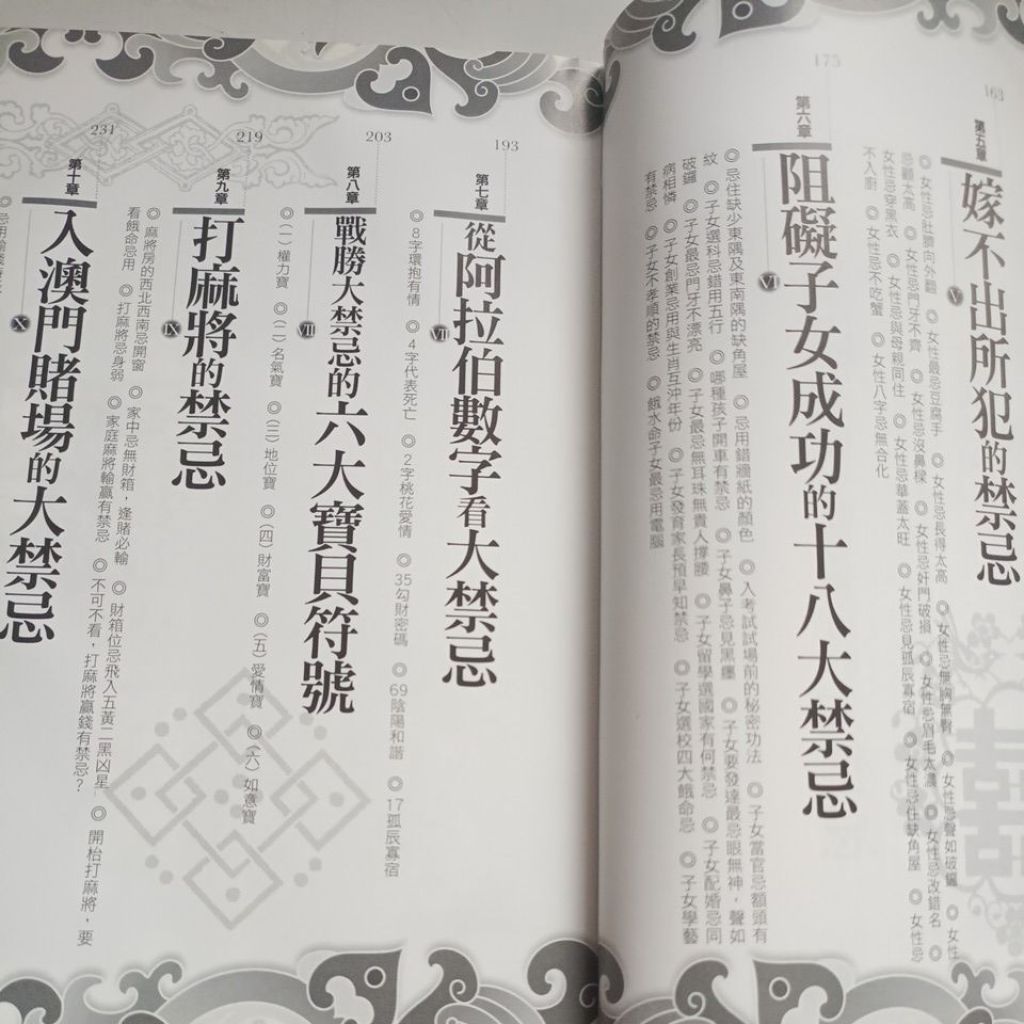 163
第五章
嫁不出所犯的禁忌
V
◎女性忌肚臍向外翻 ◎女性最忌豆腐手 ◎女性忌長得太高 ◎女性忌無胸無臀 ◎女性忌聲如破鑼 ◎女性
忌顴太高 ◎女性忌門牙不齊 ◎女性忌沒鼻樑 ◎女性忌奸門破損 ◎女性忌眉毛太濃 ◎女性忌改錯名 ◎
女性忌穿黑衣 ◎女性忌與母親同住 ◎女性忌華蓋太旺 ◎女性忌見孤辰寡宿 ◎女性忌住缺角屋 ◎女性忌
不入廚 ◎女性忌不吃蟹 ◎女性八字忌無合化
175
第六章
阻礙子女成功的十八大禁忌
VI
◎忌住缺少東隅及東南隅的缺角屋 ◎忌用錯牆紙的顏色 ◎入考試試場前的秘密功法 ◎子女當官忌額頭有
紋 ◎子女選科忌錯用五行 ◎哪種孩子開車有禁忌 ◎子女鼻子忌見黑癦 ◎子女要發達最忌眼無神，聲如
破鑼 ◎子女最忌門牙不漂亮 ◎子女最忌無耳珠無貴人撐腰 ◎子女留學選國家有何禁忌 ◎子女配婚忌同
病相憐 ◎子女創業忌用與生肖互沖年份 ◎子女發育家長預早知禁忌 ◎子女選校四大餓命忌 ◎子女學藝
有禁忌 ◎子女不孝順的禁忌 ◎餓水命子女最忌用電腦
193
第七章
從阿拉伯數字看大禁忌
VII
◎8字環抱有情 ◎4字代表死亡 ◎2字桃花愛情 ◎35勾財密碼 ◎69陰陽和諧 ◎17孤辰寡宿
203
第八章
戰勝大禁忌的六大寶貝符號
VIII
◎(一)權力寶 ◎(二)名氣寶 ◎(三)地位寶 ◎(四)財富寶 ◎(五)愛情寶 ◎(六)如意寶
219
第九章
打麻將的禁忌
IX
◎麻將房的西北西南忌開窗 ◎家中忌無財箱，逢賭必輸 ◎財箱位忌飛入五黃二黑凶星 ◎開枱打麻將，要
看餓命忌用 ◎打麻將忌身弱 ◎家庭麻將輸贏有禁忌 ◎不可不看，打麻將贏錢有禁忌？
231
第十章
入澳門賭場的大禁忌
X